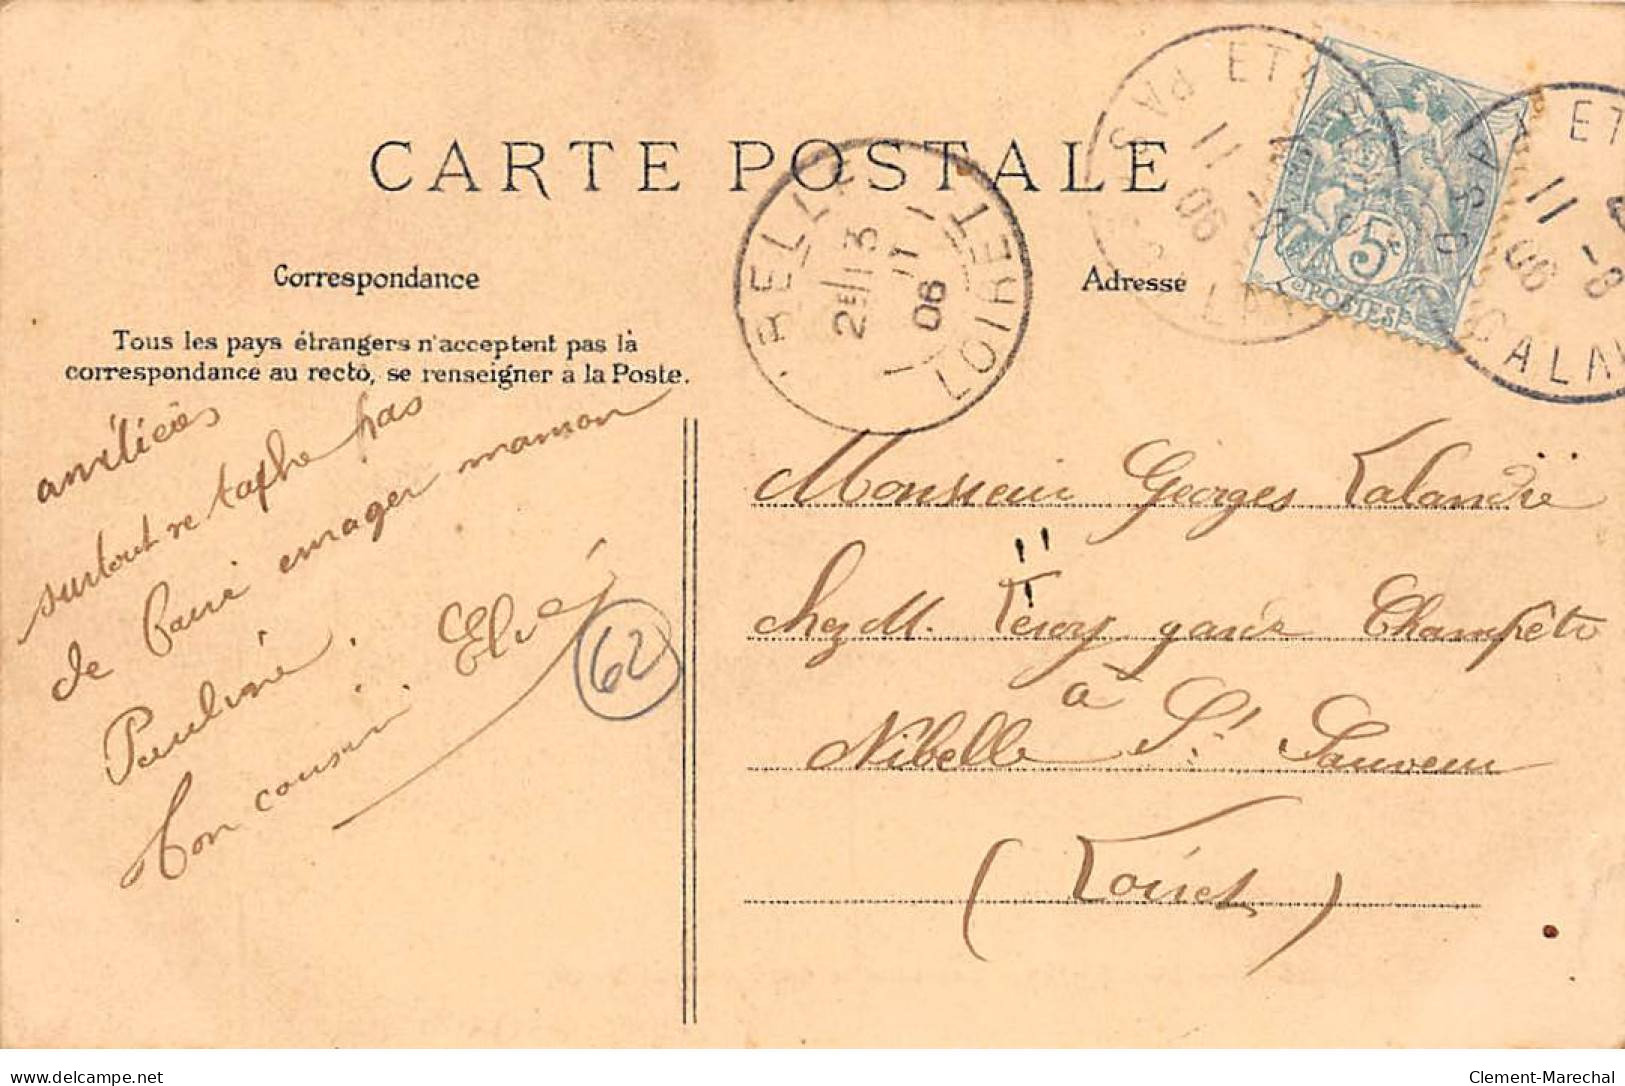 CARTE POSTALE
Correspondance
Adresse
Tous les pays étrangers n'acceptent pas la
correspondance au recto, se renseigner à la Poste.
NIBELLE
LOIRET
2E/13
11
06
PAS
ET
11
06
CALAIS
5c
POSTES
PAS
ET
11
-8
06
CALAI
surtout ne tache pas
de faire enrager maman
Pauline.
Ton cousin. Elié
62
Monsieur Georges Lalandre
chez M. Leroy garde Champêtre
à
Nibelle St Sauveur
(Loiret)
delcampe.net
Clement-Marechal